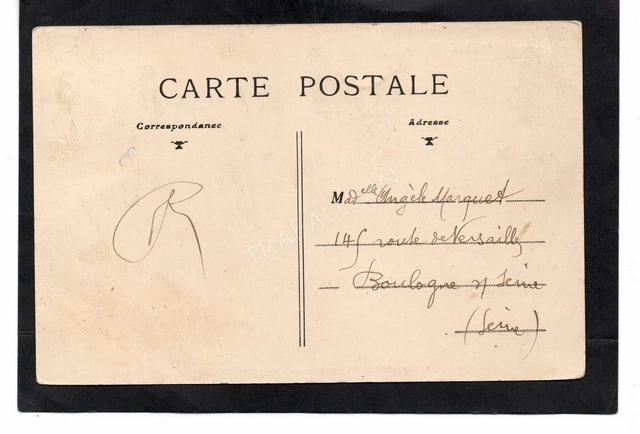 CARTE POSTALE
Correspondance
Adresse
R
Madelle Angèle Marquet
145 route de Versailles
Boulogne s/ Seine
(Seine)